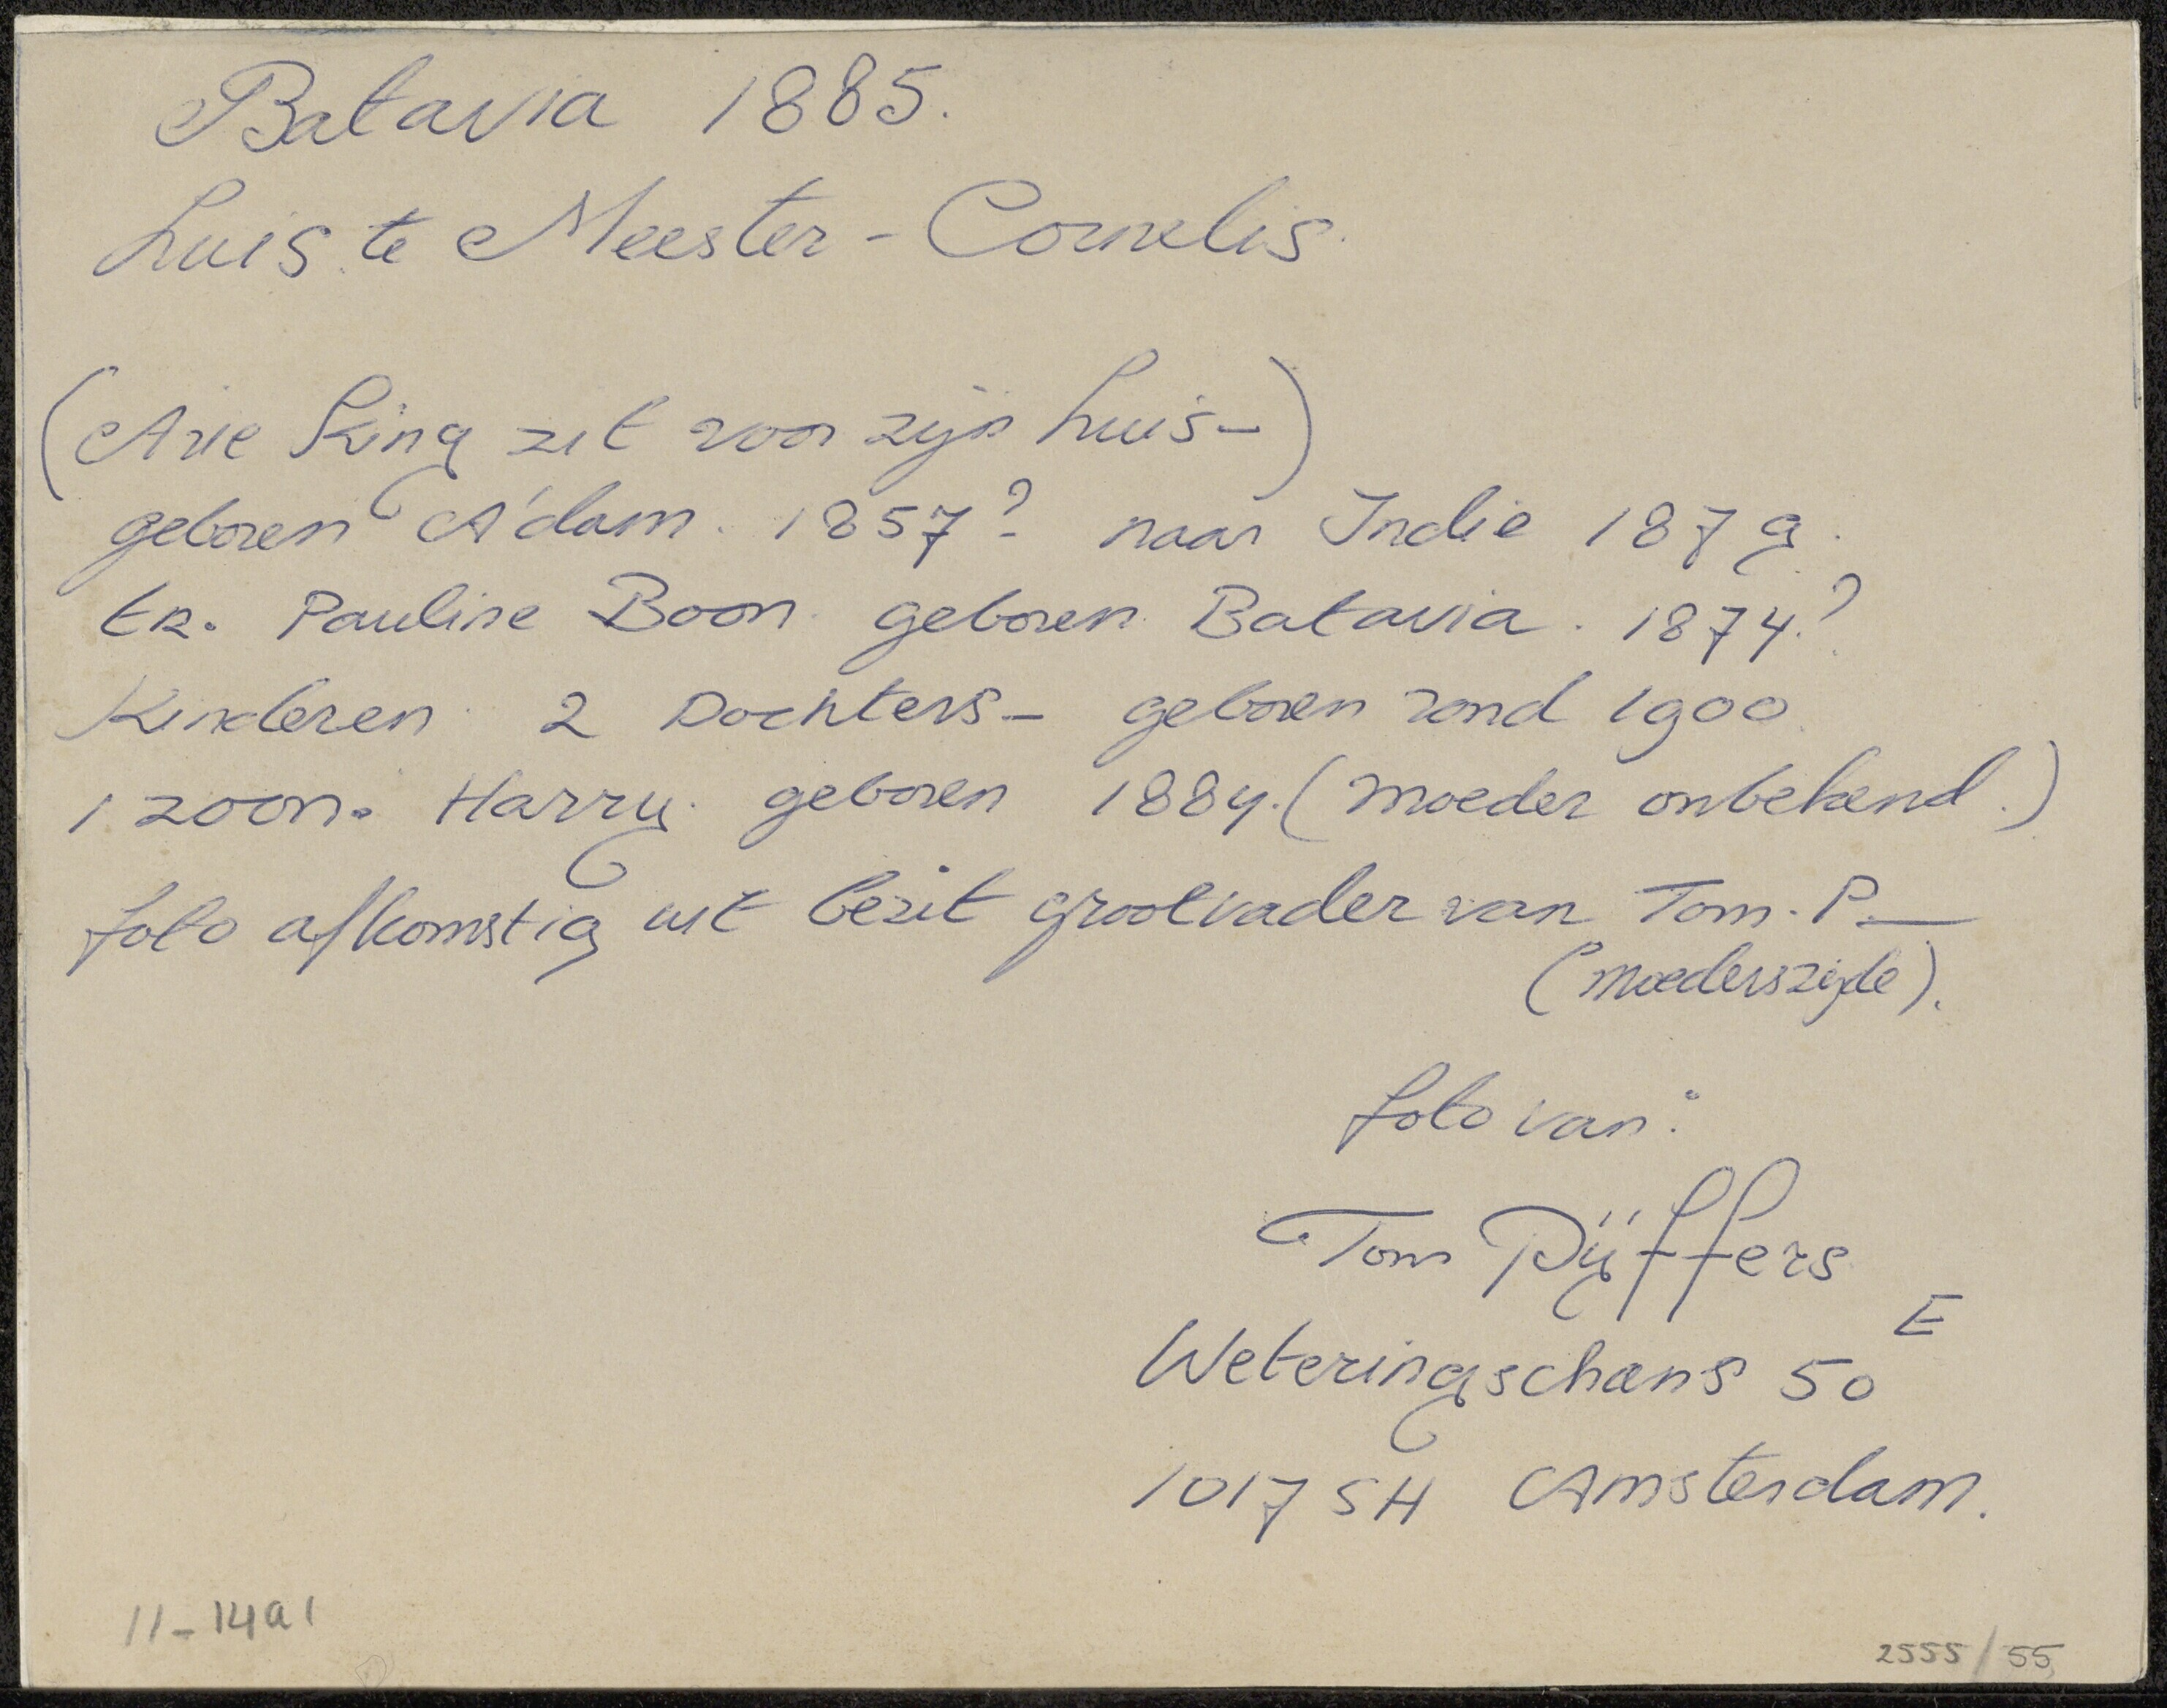 Batavia 1885.
huis te Meester-Cornelis.
(Arie King zit voor zijn huis-)
geboren A'dam. 1857? naar Indie 1879.
tr. Pauline Boon. geboren Batavia. 1874.?
Kinderen 2 Dochters- geboren rond 1900.
1 zoon. Harry. geboren 1884. (moeder onbekend.)
foto afkomstig uit bezit grootvader van Tom. P.—
(moederszijde).
foto van:
Tom Pÿffers
Weteringschans 50 E
1017 SH Amsterdam.
11-14a1
2555/55